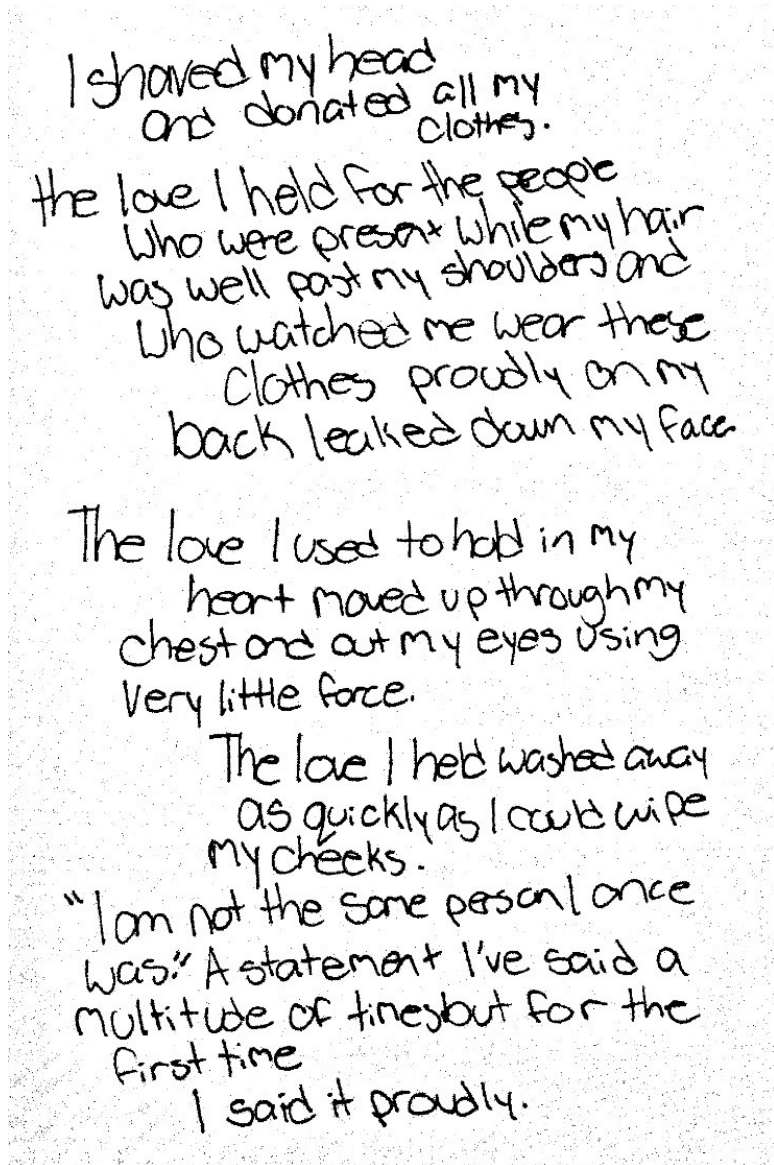 I shaved my head
and donated all my
clothes.
the love I held for the people
who were present while my hair
was well past my shoulders and
who watched me wear these
clothes proudly on my
back leaked down my face
The love I used to hold in my
heart moved up through my
chest and out my eyes using
very little force.
The love I held washed away
as quickly as I could wipe
my cheeks.
"I am not the same person I once
was." A statement I've said a
multitude of times but for the
first time
I said it proudly.